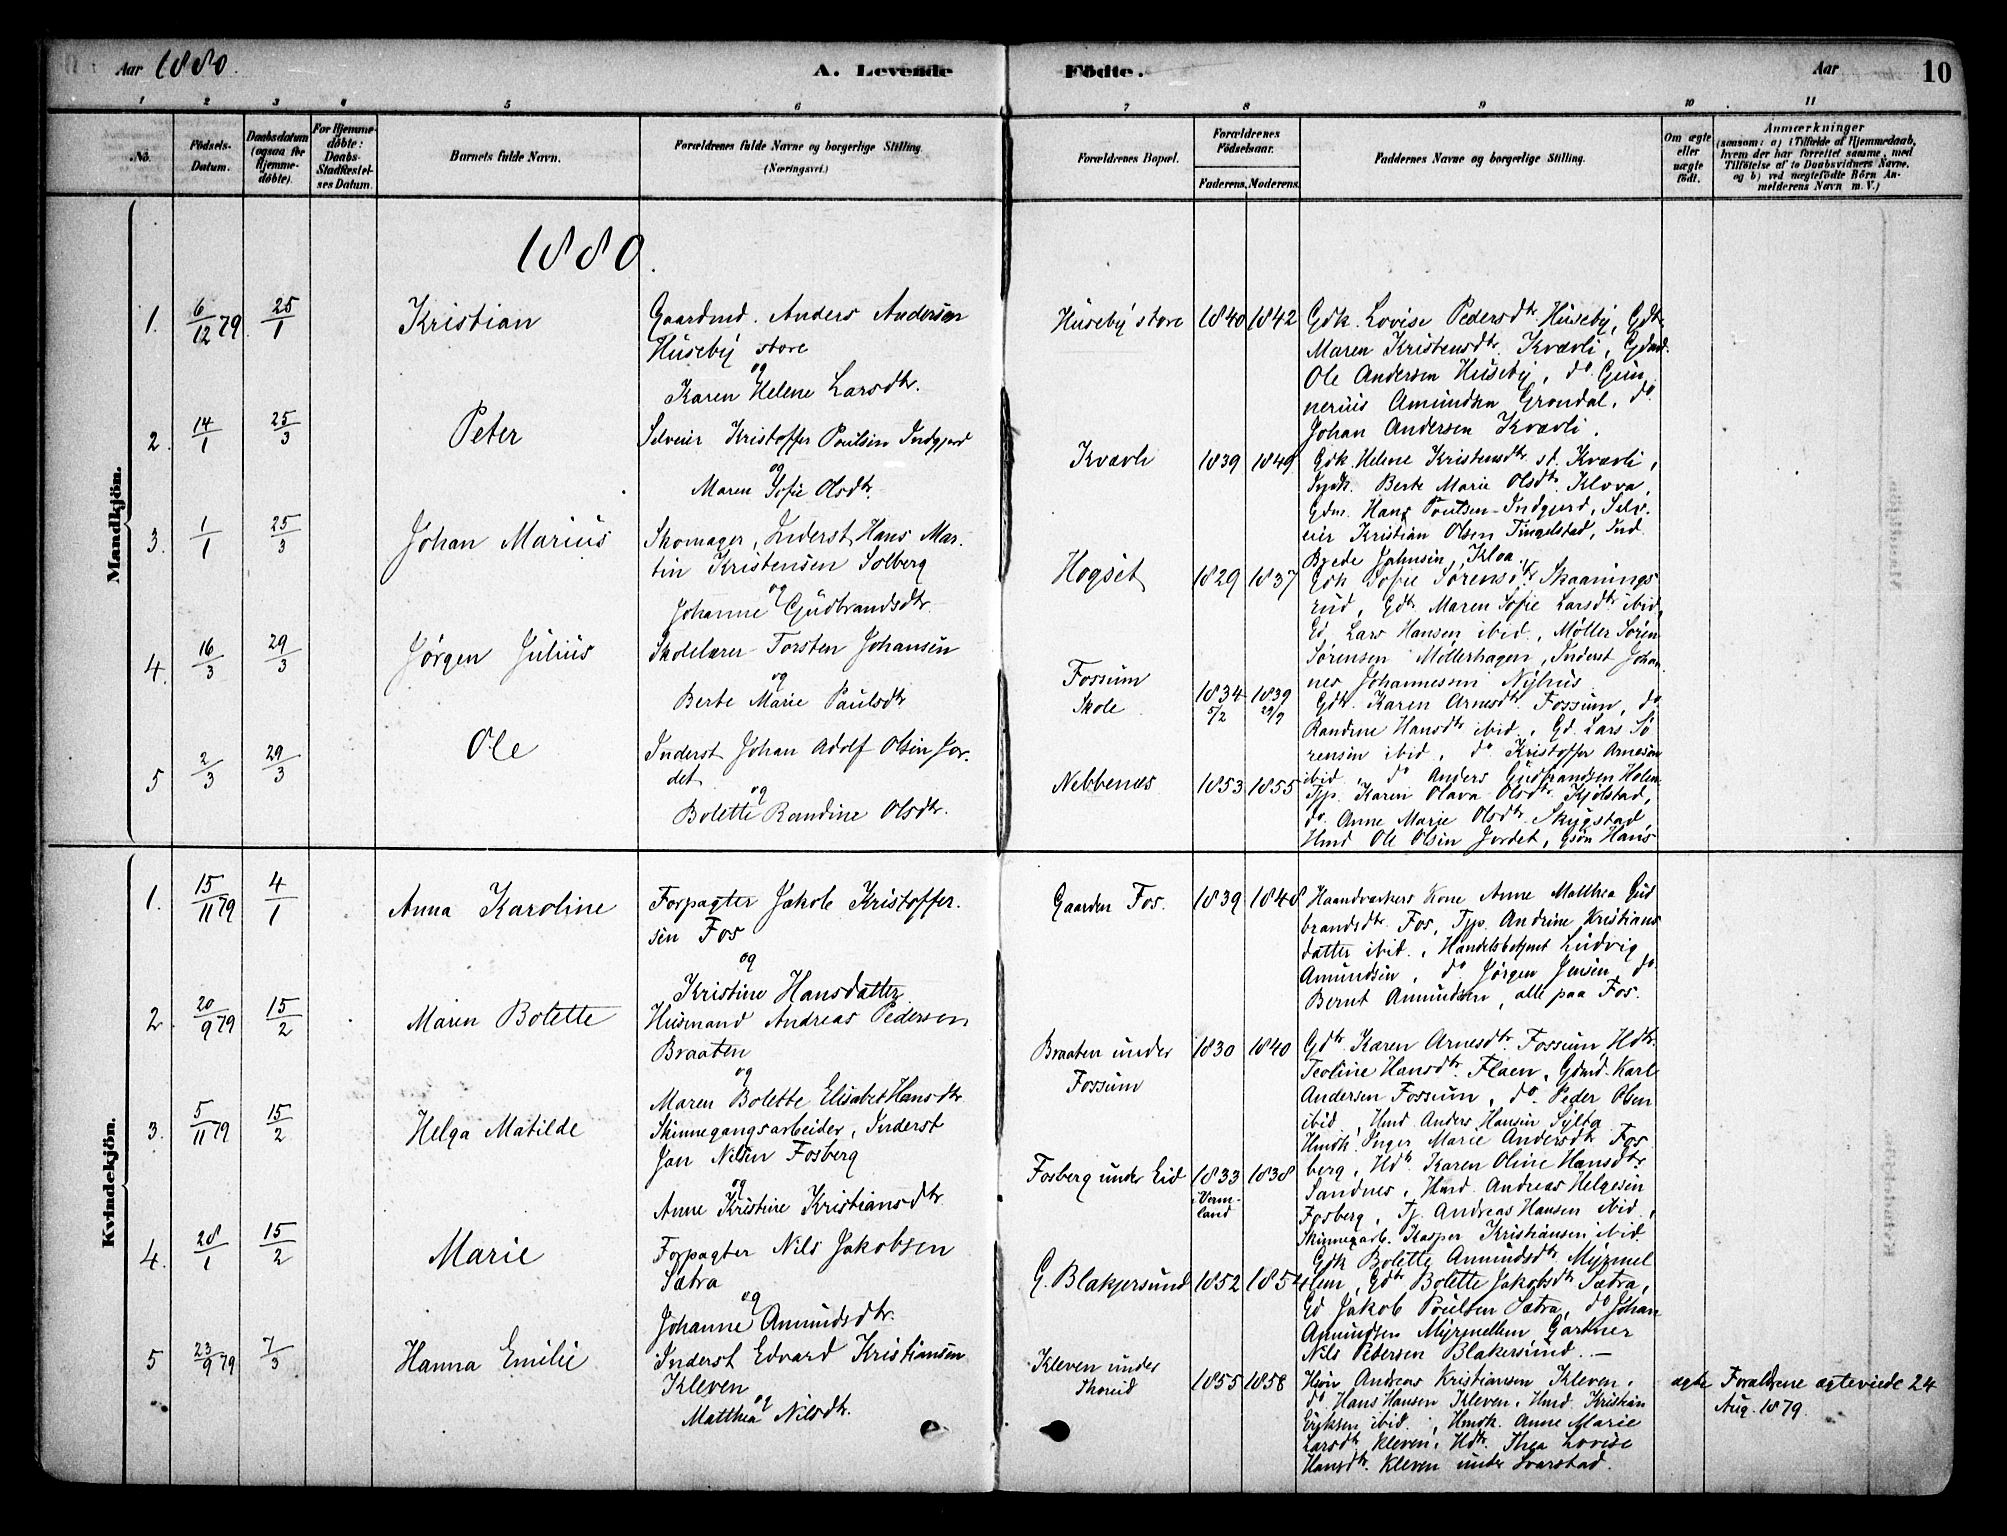 Aar 1880.
A. Levende
Födte.
Aar
10
1 2 3 4 5 6 7 8 9 10 11
No.
Födsels-
Datum.
Daabsdatum
(ogsaa for
Hjemme-
döbte).
For Hjemme-
döbte:
Daabs-
Stadfæstel-
ses Datum.
Barnets fulde Navn.
Forældrenes fulde Navne og borgerlige Stilling
(Næringsvei.)
Forældrenes Bopæl.
Forældrenes
Födselsaar.
Faderens. Moderens.
Faddernes Navne og borgerlige Stilling.
Om ægte
eller
uægte
födt.
Anmærkninger
(saasom: a) i Tilfælde af Hjemmedaab,
hvem der har forrettet samme, med
Tilföielse af to Daabsvidners Navne,
og b) ved uægtefödte Börn An-
melderens Navn m. V.)
Mandkjön.
1880.
1. 6/12 79. 25/1 Kristian
Gaardmd. Anders Andersen
Huseby store
og
Karen Helene Larsdtr.
Huseby store 1840 1842
Gdk. Lovise Pedersdtr. Huseby, Gdtr.
Maren Kristensdtr. Kværli, Gdmd.
Ole Andersen Huseby, do. Gun
nerius Amundsen Grøndal, do.
Johan Andersen Kværli.
2. 14/1 25/3 Peter
Selveier Kristoffer Poulsen Indgjerd
og
Maren Sofie Olsdtr.
Kværli 1839 1849
Gdk. Helene Kristensdtr. st. Kværli,
Berte Marie Olsdtr. Klova,
Gdm. Hans Poulsen Indgjerd, Selv.
eier Kristian Olsen Tingelstad, Ind
Johnsen, Kloa.
3. 1/1 25/3 Johan Marius
Skomager, Inderst Hans Mar-
tin Kristensen Solberg
og
Johanne Gudbrandsdtr.
Hogset 1829 1837
Gdk Sofie Sørensdtr Skaanings
rud, Gdtr. Maren Sofie Larsdtr ibid,
Gd. Lars Hansen ibid., Møller Søren
Sørensen Møllerhagen, Inderst Johan
nes Johannesen Nyhus
4. 16/3 29/3 Jørgen Julius
Skolelærer Torsten Johansen
og
Berte Marie Paulsdtr
Fossum
Skole
1834 1839
5/2 29/9
Gdtr. Karen Arnesdtr. Fossum, do.
Randine Hansdtr ibid., Gd. Lars Sø
rensen ibid, do Kristoffer Arnesen
ibid, do Anders Gudbrandsen Holm
5 2/3 29/3 Ole
Inderst Johan Adolf Olsen Jor-
det
og
Bolette Randine Olsdtr.
Nebbenæs 1853 1855
Typ. Karen Olava Olsdtr. Kjølstad,
do. Anne Marie Olsdtr. Skygstad,
Hmd Ole Olsen Jordet, Gsøn Hans
Kvindekjön.
1. 15/11 79 4/1 Anna Karoline
Forpagter Jakob Kristoffer-
sen Fos
og
Kristine Hansdatter
Gaarden Fos. 1839 1848
Haandværkers Kone Anne Matthea Gud
brandsdtr. Fos, Typ. Andrine Kristians
datter ibid., Handelsbetjent Ludvig
Amundsen, do Jørgen Jensen, do
Bernt Amundsen, alle paa Fos.
2. 20/9 79 15/2 Maren Bolette
Husmand Andreas Pedersen
Braaten
og
Maren Bolette Elisabet Hansdtr.
Braaten under
Fossum
1830 1840
Gdtr. Karen Arnesdtr. Fossum, Hdtr.
Teoline Hansdtr. Flaen, Gdmd. Karl
Andersen Fossum, do. Peder Olsen
ibid, Hmd Anders Hansen Sylta
3. 5/11 79 15/2 Helga Matilde
Skinnegangsarbeider, Inderst
Jan Nilsen Fosberg
og
Anne Kristine Kristiansdtr.
Fosberg under Eid 1833 1838
Verm-
land
Hmdk. Inger Marie Andersdtr. Fos
berg, Hdtr. Karen Oline Hansdtr.
Sandnes, Hmd. Andreas Helgesen
Fosberg, Tj. Andreas Hansen ibid,
Skinnegarb. Kasper Kristiansen ibid
4. 28/1 15/2 Marie
Forpagter Nils Jakobsen
Sætra
og
Johanne Amundsdtr.
G. Blakjersund 1852 1854
Gdk Bolette Amundsdtr. Myrmel
len, Gdtr. Bolette Jakobsdtr. Sætra,
Gd Jakob Poulsen Sætra, do Johan
Amundsen Myrmellem, Gartner
Nils Pedersen Blakersund. —
5 23/9 79 7/3 Hanna Emilie
Inderst Edvard Kristiansen
Kleven
og
Matthea Nilsdtr.
Kleven under
Thorud
1855 1858
Hsøn Andreas Kristiansen Kleven,
do Hans Hansen Kleven, Hmd. Kristian
Eriksen ibid., Hmdk. Anne Marie
Larsdtr. Kleven, Hdtr. Thea Lovise
Hansdtr. Kleven under Svarstad.
ægte
Forældrene ægteviede 24
Aug. 1879.